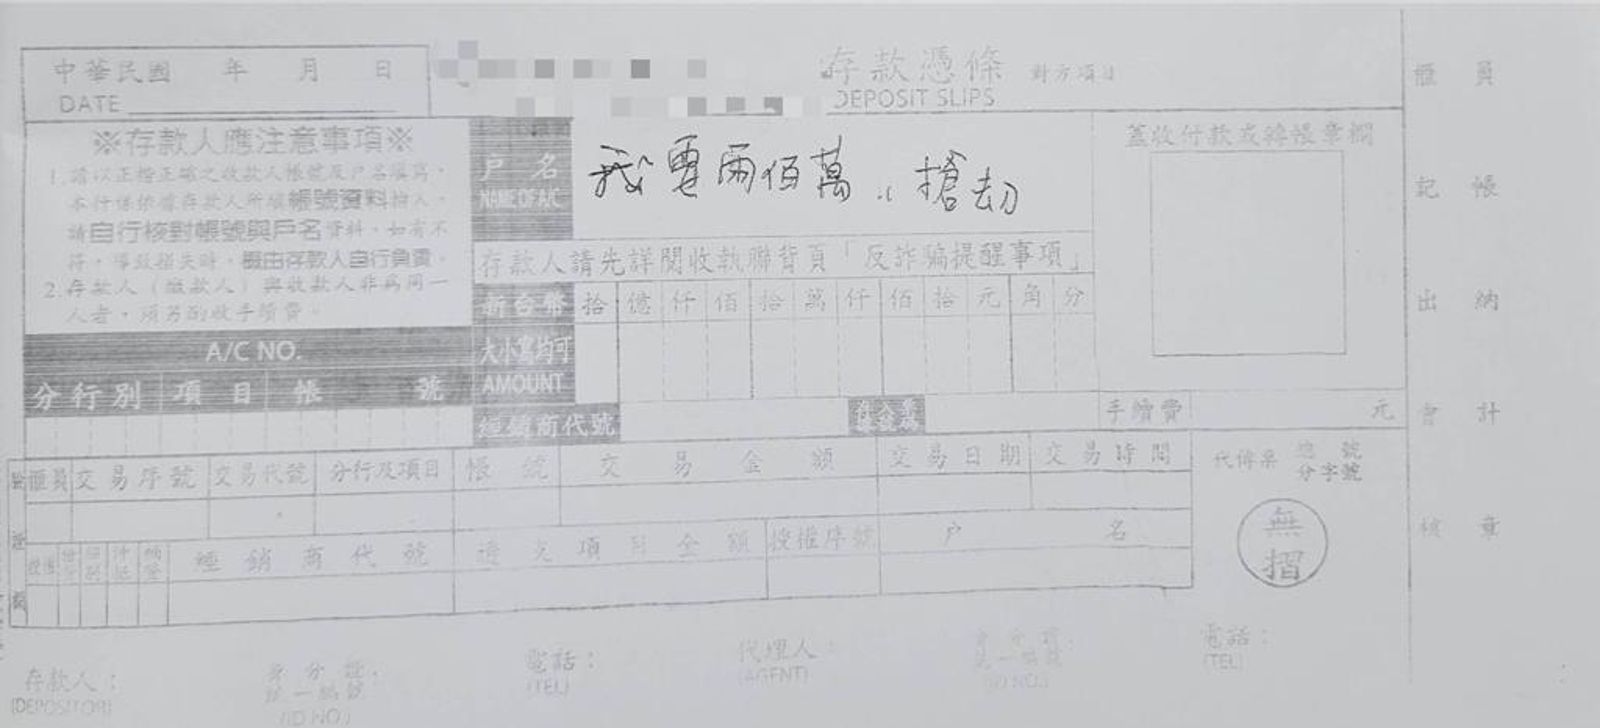 中華民國 年 月 日
DATE
存款憑條 對方項目
DEPOSIT SLIPS
櫃員
※存款人應注意事項※
1.請以正楷正確之收款人帳號及戶名填寫，
本行係依據存款人所填帳號資料拾入，
請自行核對帳號與戶名資料，如有不
符，導致損失時，概由存款人自行負責。
2.存款人（繳款人）與收款人非為同一
人者，須另酌收手續費。
戶名
NAME OF A/C
我要兩佰萬，搶劫
蓋收付款或轉帳章欄
記帳
存款人請先詳閱收執聯背頁「反詐騙提醒事項」
新台幣 拾 億 仟 佰 拾 萬 仟 佰 拾 元 角 分
出納
大小寫均可
AMOUNT
A/C NO.
分行別 項目 帳號
經銷商代號
手續費 元
會計
櫃員 交易序號 交易代號 分行及項目 帳號 交易金額 交易日期 交易時間
代傳票 總號
分字號
經銷商代號 授權序號 戶名
無
摺
核章
存款人：
(DEPOSITOR)
身分證.
統一編號
(ID NO.)
電話：
(TEL)
代理人：
(AGENT)
身分證.
統一編號
(ID NO.)
電話：
(TEL)